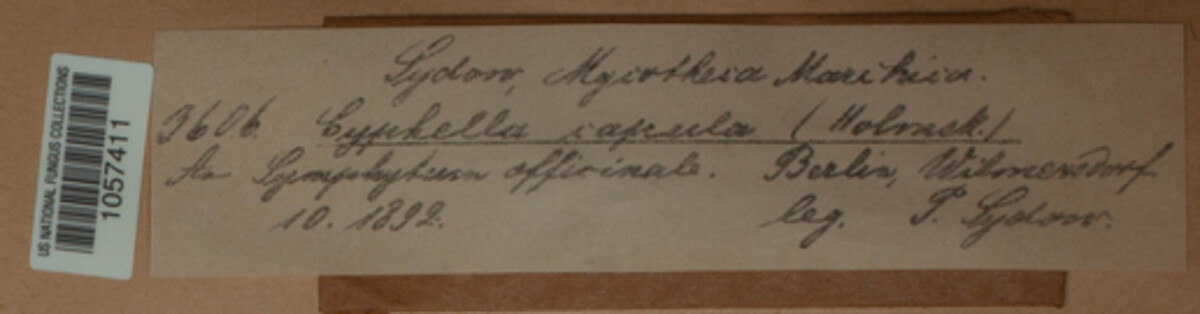 US NATIONAL FUNGUS COLLECTIONS
1057411
Sydow, Mycotheca Marchica.
3606. Cyphella capula (Holmsk.)
An Symphytum officinale. Berlin, Wilmersdorf
10. 1892. leg. P. Sydow.